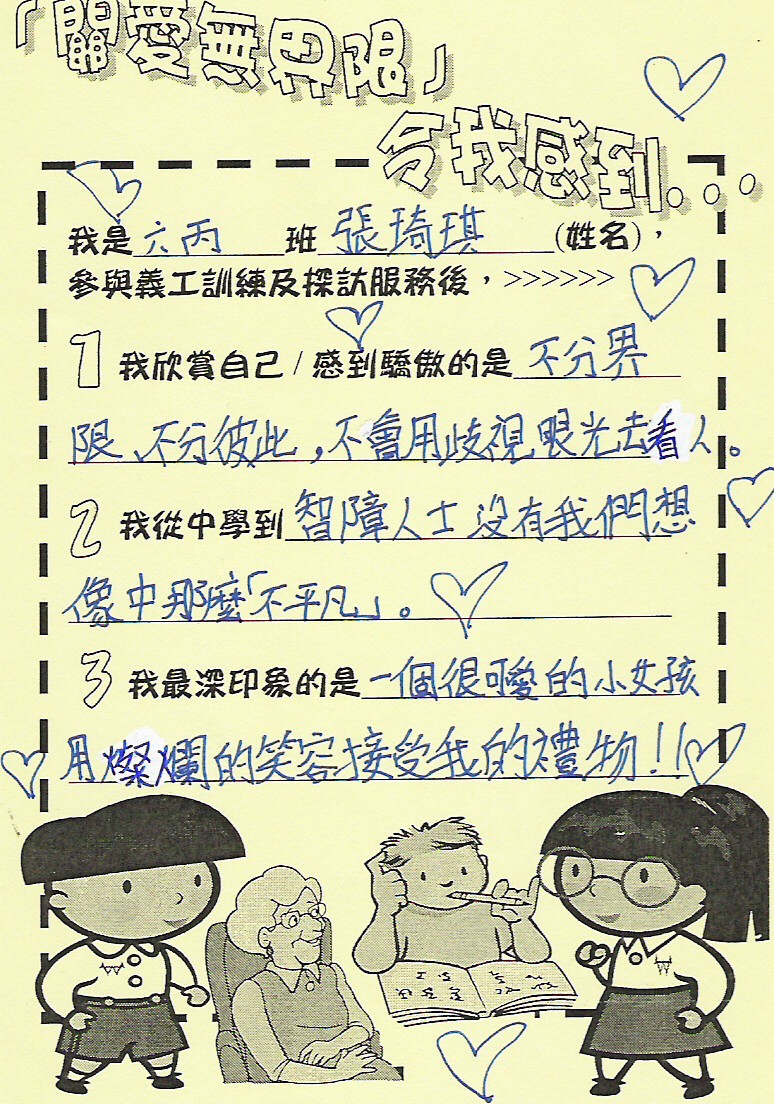 「關愛無界限」
令我感到...
我是六丙班張琦琪(姓名)，
參與義工訓練及探訪服務後，>>>>>>
1 我欣賞自己/感到驕傲的是不分界
限、不分彼此，不會用歧視眼光去看人。
2 我從中學到智障人士沒有我們想
像中那麼「不平凡」。
3 我最深印象的是一個很可愛的小女孩
用燦爛的笑容接受我的禮物!!